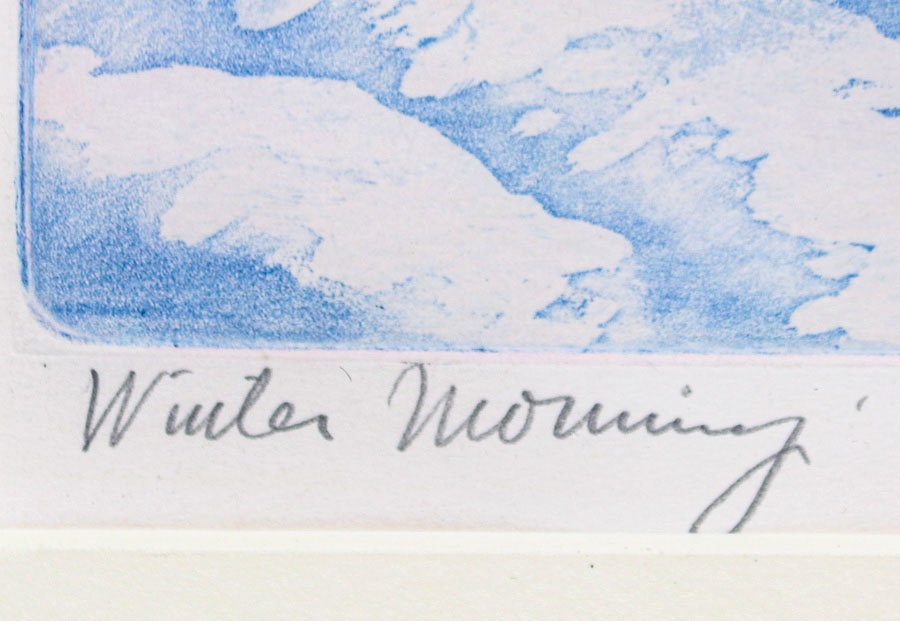 Winter Morning